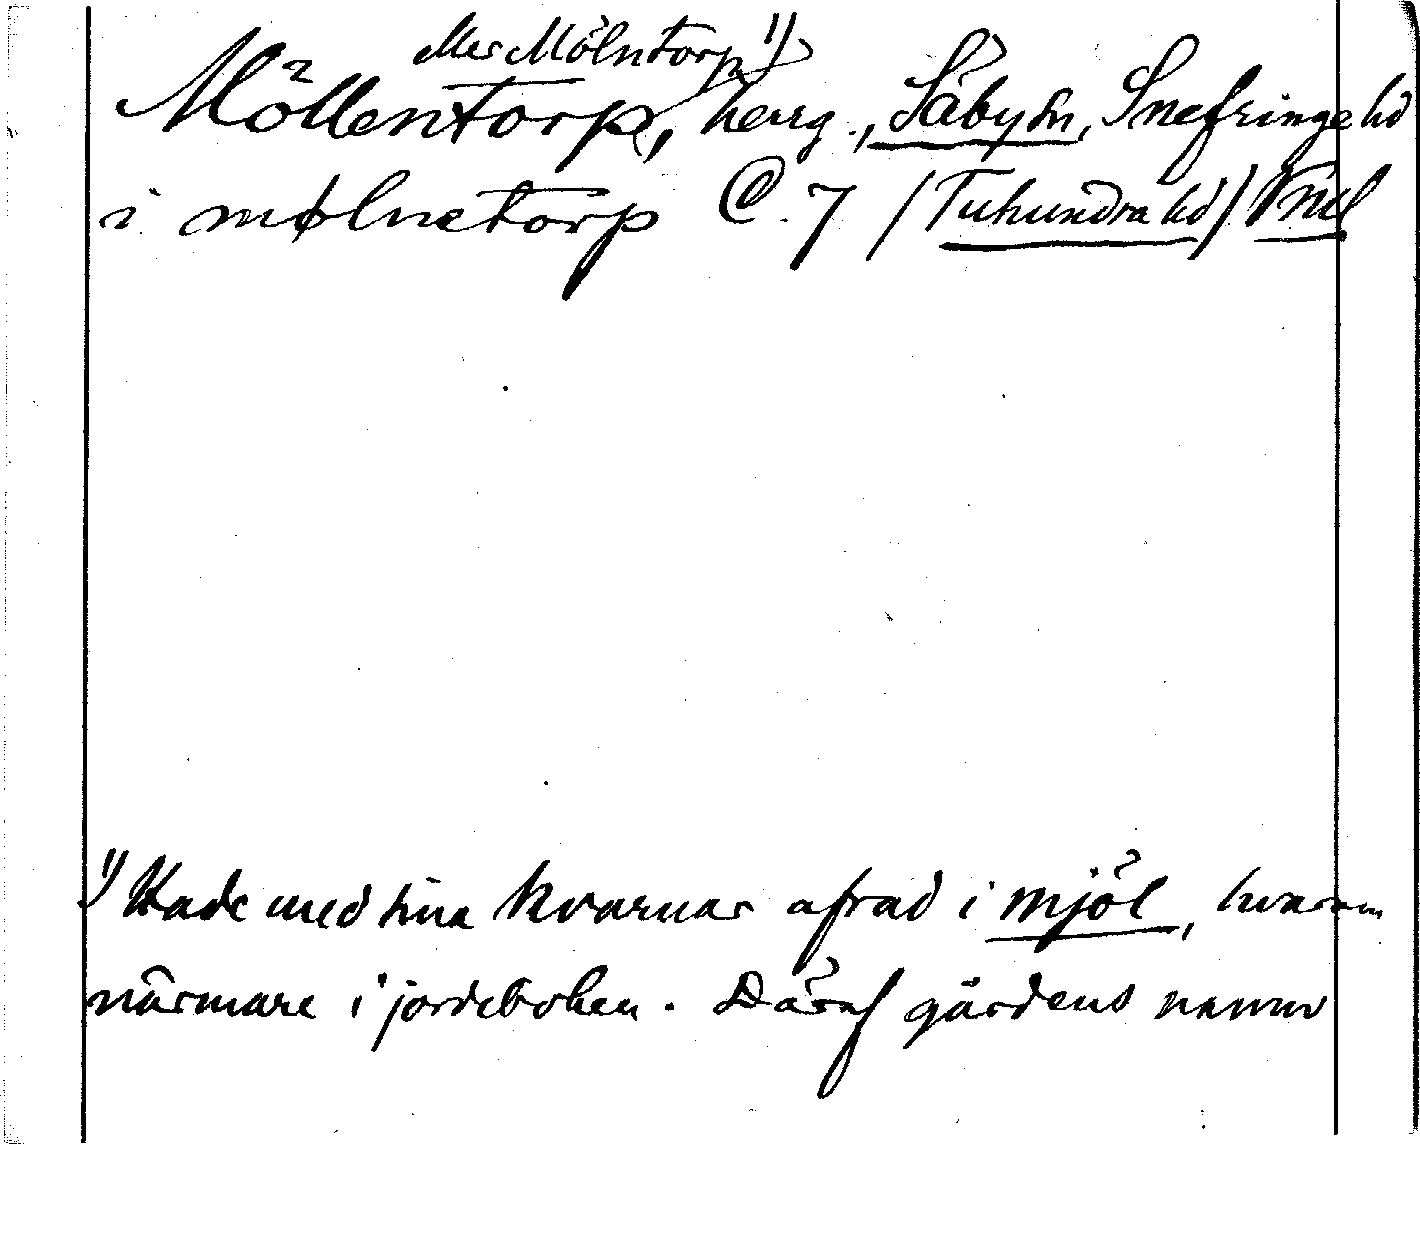 eller Mölntorp 1)
Möllentorp, herrg., Säby sn, Snefringe hd
i mølnetorp C. 7 (Tuhundra hd) Vml
1) Hade med sina kvarnar afrad i mjöl, hvarom
närmare i jordeboken. Däraf gårdens namn